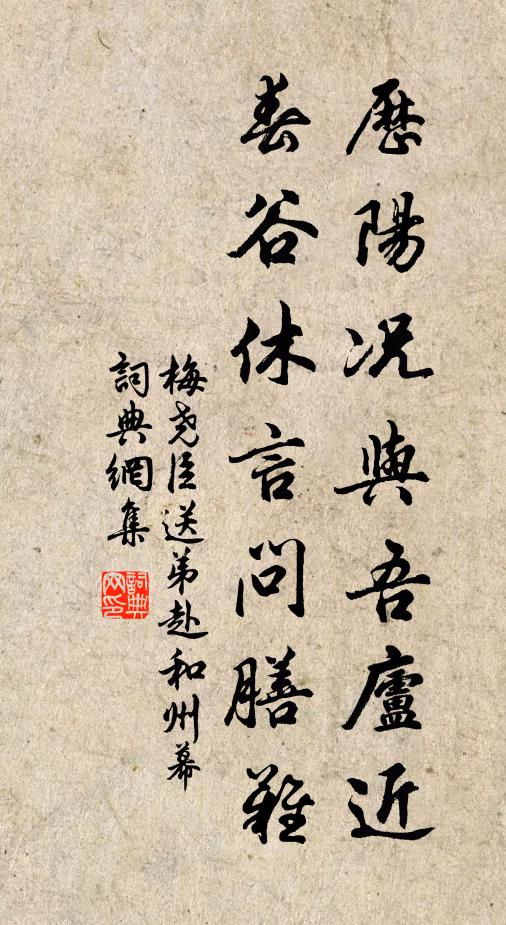 歷陽況與吾廬近
春谷休言問膳難
梅堯臣送弟赴和州幕
詞典網集
詞典網印